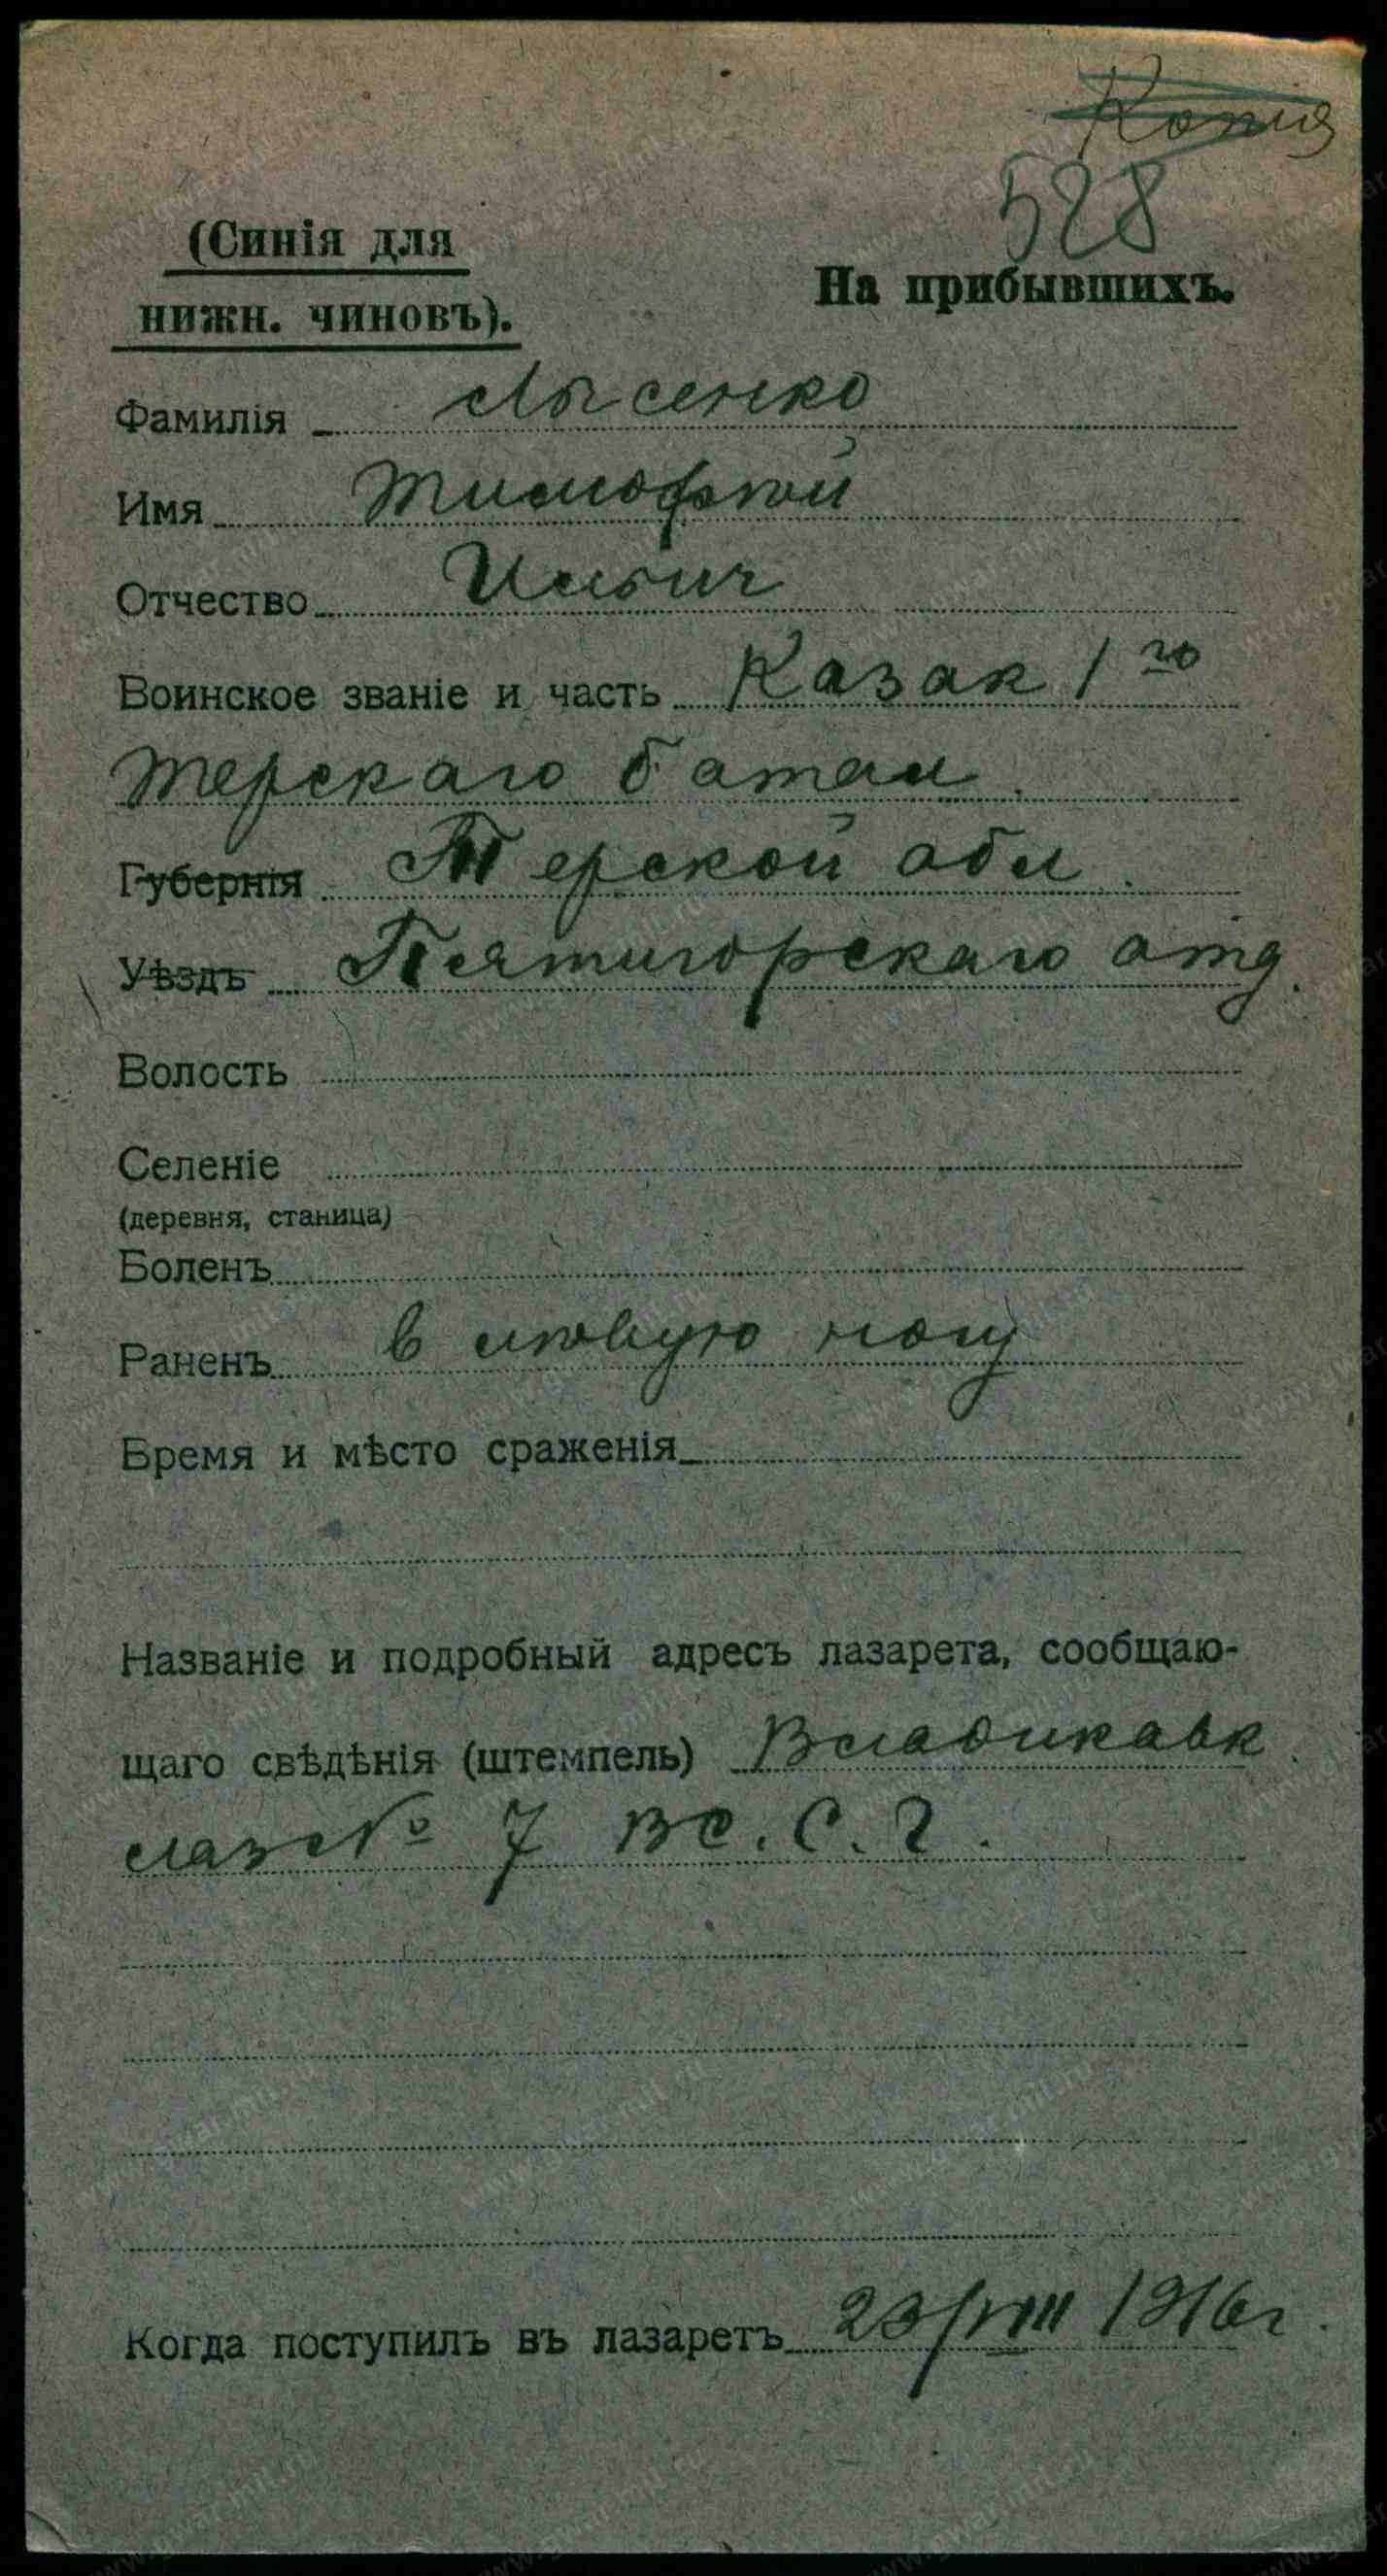 Копия
528
(Синія для
нижн. чиновъ).
На прибывшихъ.
Фамилія Лысенко
Имя Тимофѣй
Отчество Ильич
Воинское званіе и часть Казак 1го
Терскаго батал.
Губернія Терской обл.
Уѣздъ Пятигорскаго отд.
Волость
Селеніе
(деревня, станица)
Боленъ
Раненъ в лѣвую ногу
Время и мѣсто сраженія
Названіе и подробный адресъ лазарета, сообщаю-
щаго свѣдѣнія (штемпель) Владикавк.
лаз № 7 Вс. С. Г.
Когда поступилъ въ лазаретъ 23/VIII 1916 г.
www.gwar.mil.ru